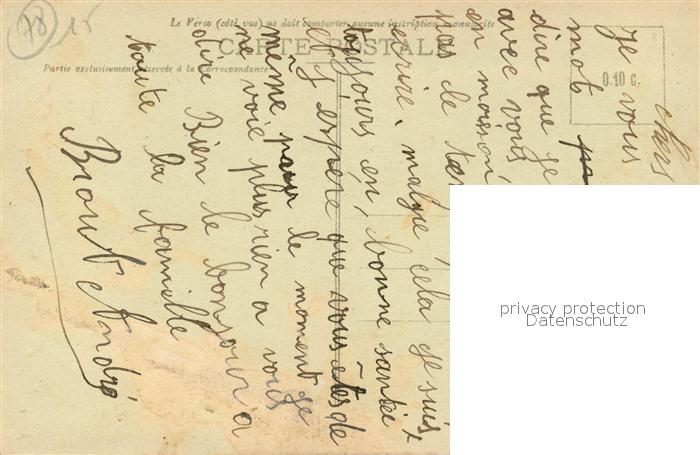 Le Verso (côté vue) ne doit comporter aucune inscription manuscrite
CARTE POSTALE
Partie exclusivement réservée à la Correspondance
0.10 c.
18 15
chers
Je vous
mot
dire que je
avec vous
en moisson
pas de
ecrire. malgré cela je suis
toujours en bonne santée
et j espere que vous êtes de
meme pour le moment je
ne voie plus rien a vous
dire Bien le bonjour a
toute la famille
Briout André
privacy protection
Datenschutz